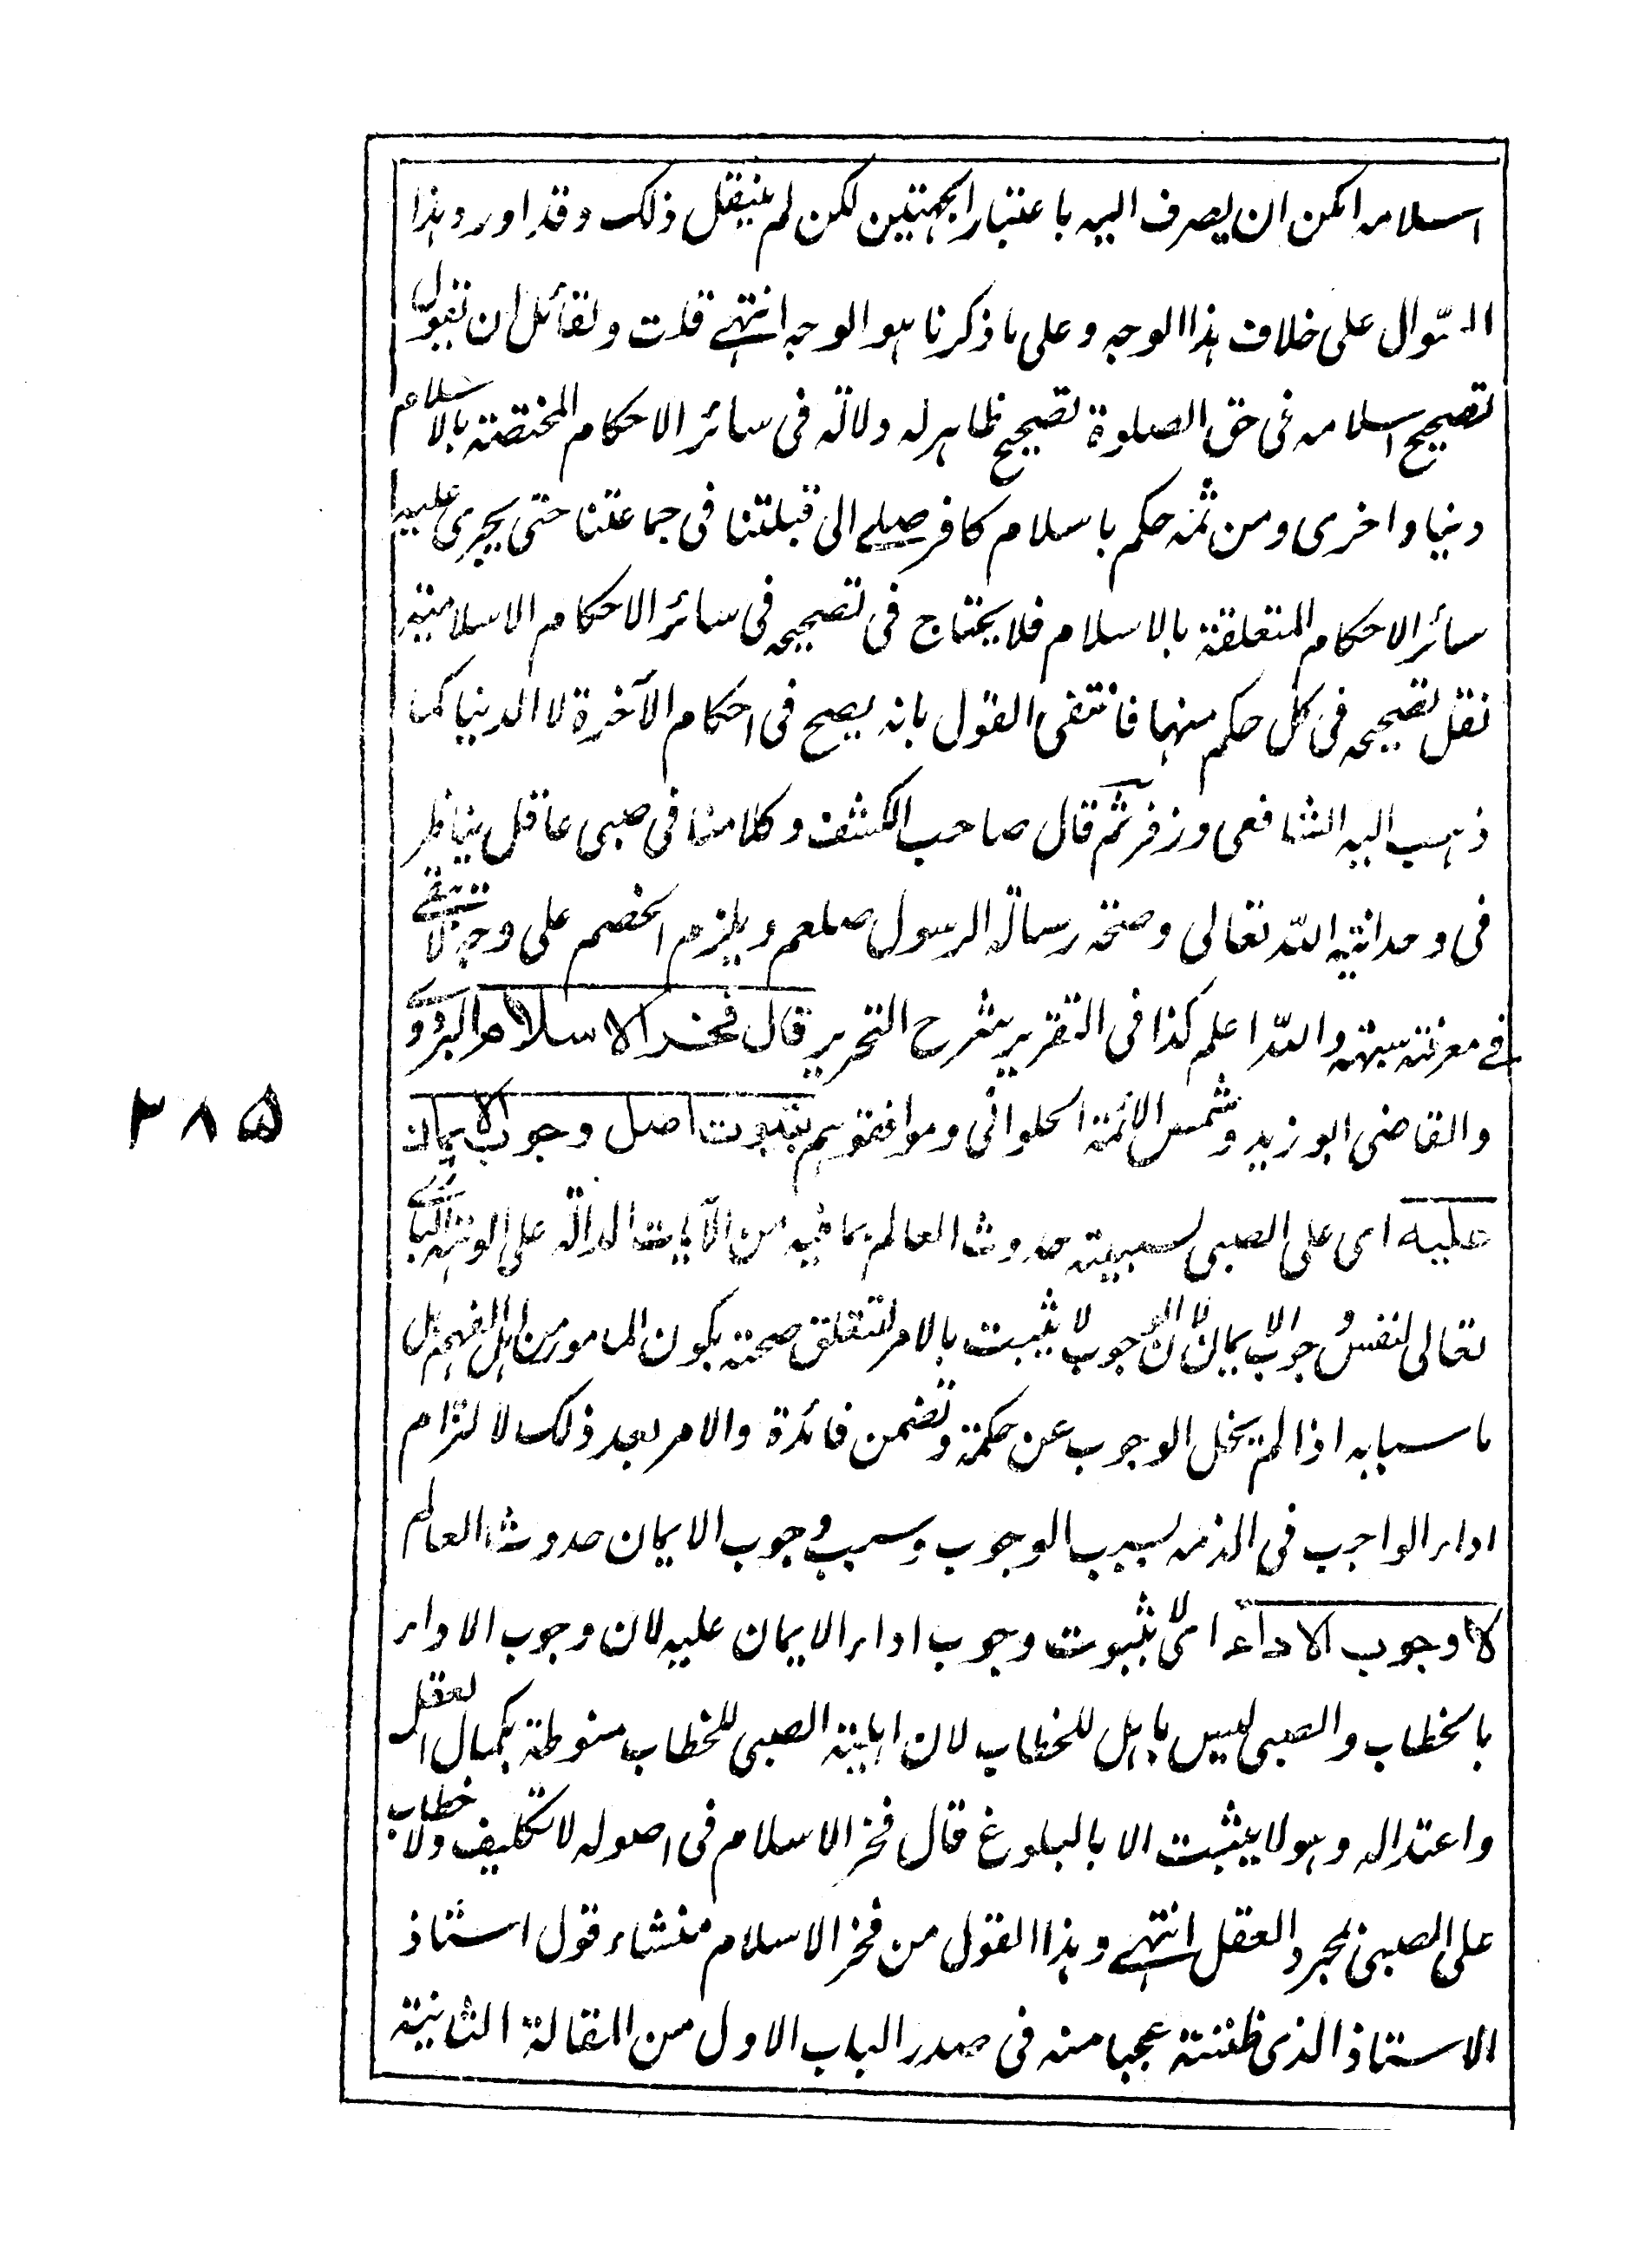 اسلامه امكن ان يصرف اليه باعتبار الجهتين لكن لم ينقل ذلك وقد اورد هذا
السّوال على خلاف هذا الوجه وعلى ما ذكرنا هو الوجه انتهى قلت ولقائل ان يقول
تصحيح اسلامه فى حق الصلوة تصحيح ظاهر له دلالة فى سائر الاحكام المختصة بالاسلام
دنيا واخرى ومن ثمه حكم باسلام كافر صلى الى قبلتنا فى جماعتنا حتى يجرى عليه
سائر الاحكام المتعلقة بالاسلام فلا يحتاج فى تصحيحه فى سائر الاحكام الاسلامية
نقل تصحيحه فى كل حكم منها فانتفى القول بانه يصح فى احكام الآخرة لا الدنيا كما
ذهب اليه الشافعى وزفر ثم قال صاحب الكشف وكلامنا فى صبى عاقل يناظر
فى وحدانية الله تعالى وصحة رسالة الرسول صلعم ويلزم الخصم على وجه لا تبقى
فى معرفته شبهة والله اعلم كذا فى التقرير شرح التحرير قال فخر الاسلام البزدوى
والقاضى ابو زيد وشمس الائمة الحلوانى وموافقوهم بثبوت اصل وجوب الايمان
عليه اى على الصبى لسببية حدوث العالم بما فيه من الآيات الدالة على الوهية البارى
تعالى لنفس وجوب الايمان لان الوجوب لا يثبت بالامر لتتعلق صحته بكون المامور من اهل الفهم بل
باسبابه اذا لم يخل الوجوب عن حكمة وتضمن فائدة والامر بعد ذلك لالتزام
اداء الواجب فى الذمه بسبب الوجوب وسبب وجوب الايمان حدوث العالم
لا وجوب الاداء اى لا بثبوت وجوب اداء الايمان عليه لان وجوب الاداء
بالخطاب والصبى ليس باهل للخطاب لان اهلية الصبى للخطاب منوطة بكمال العقل
واعتداله وهو لا يثبت الا بالبلوغ قال فخر الاسلام فى اصوله لا تكليف ولا خطاب
على الصبى بمجرد العقل انتهى وهذا القول من فخر الاسلام منشاء قول استاذ
الاستاذ الذى ظننته عجبا منه فى صدر الباب الاول من المقالة الثانية
٢٨٥